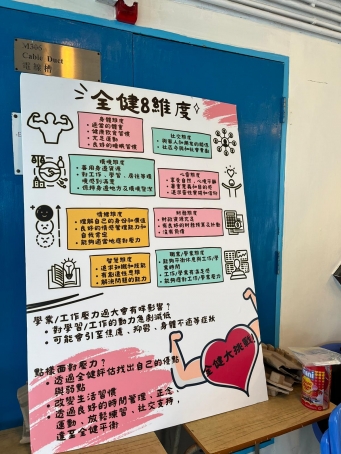 M305
Cable Duct
電線槽
全健8維度
身體維度
適當的體重
健康飲食習慣
充足運動
良好的睡眠習慣
社交維度
與家人和朋友的關係
社區參與和社會貢獻
環境維度
善用身邊資源
對工作、學習、居住等環境感到滿意
保持身邊地方及環境整潔
心靈維度
享受自然、心境平靜
尋求靈性實踐和信仰
情緒維度
理解自己的身份和價值
良好的情緒管理能力和自我肯定
能夠適當地應對壓力
財務維度
財政資源充足
有良好的財務預算及計劃
沒有負債
智慧維度
追求知識和技能
有創造性思維
解決問題的能力
職業/學業維度
能夠平衡休息與工作/學業時間
工作/學業有滿足感
能夠應對工作/學業壓力
學業/工作壓力過大會有咩影響？
對學習/工作的動力急劇減低
可能會引至焦慮、抑鬱、身體不適等症狀
點樣面對壓力？
透過全健評估找出自己的優點與弱點
改變生活習慣
透過良好的時間管理、正念、運動、放鬆練習、社交支持，達至全健平衡
全健大挑戰!